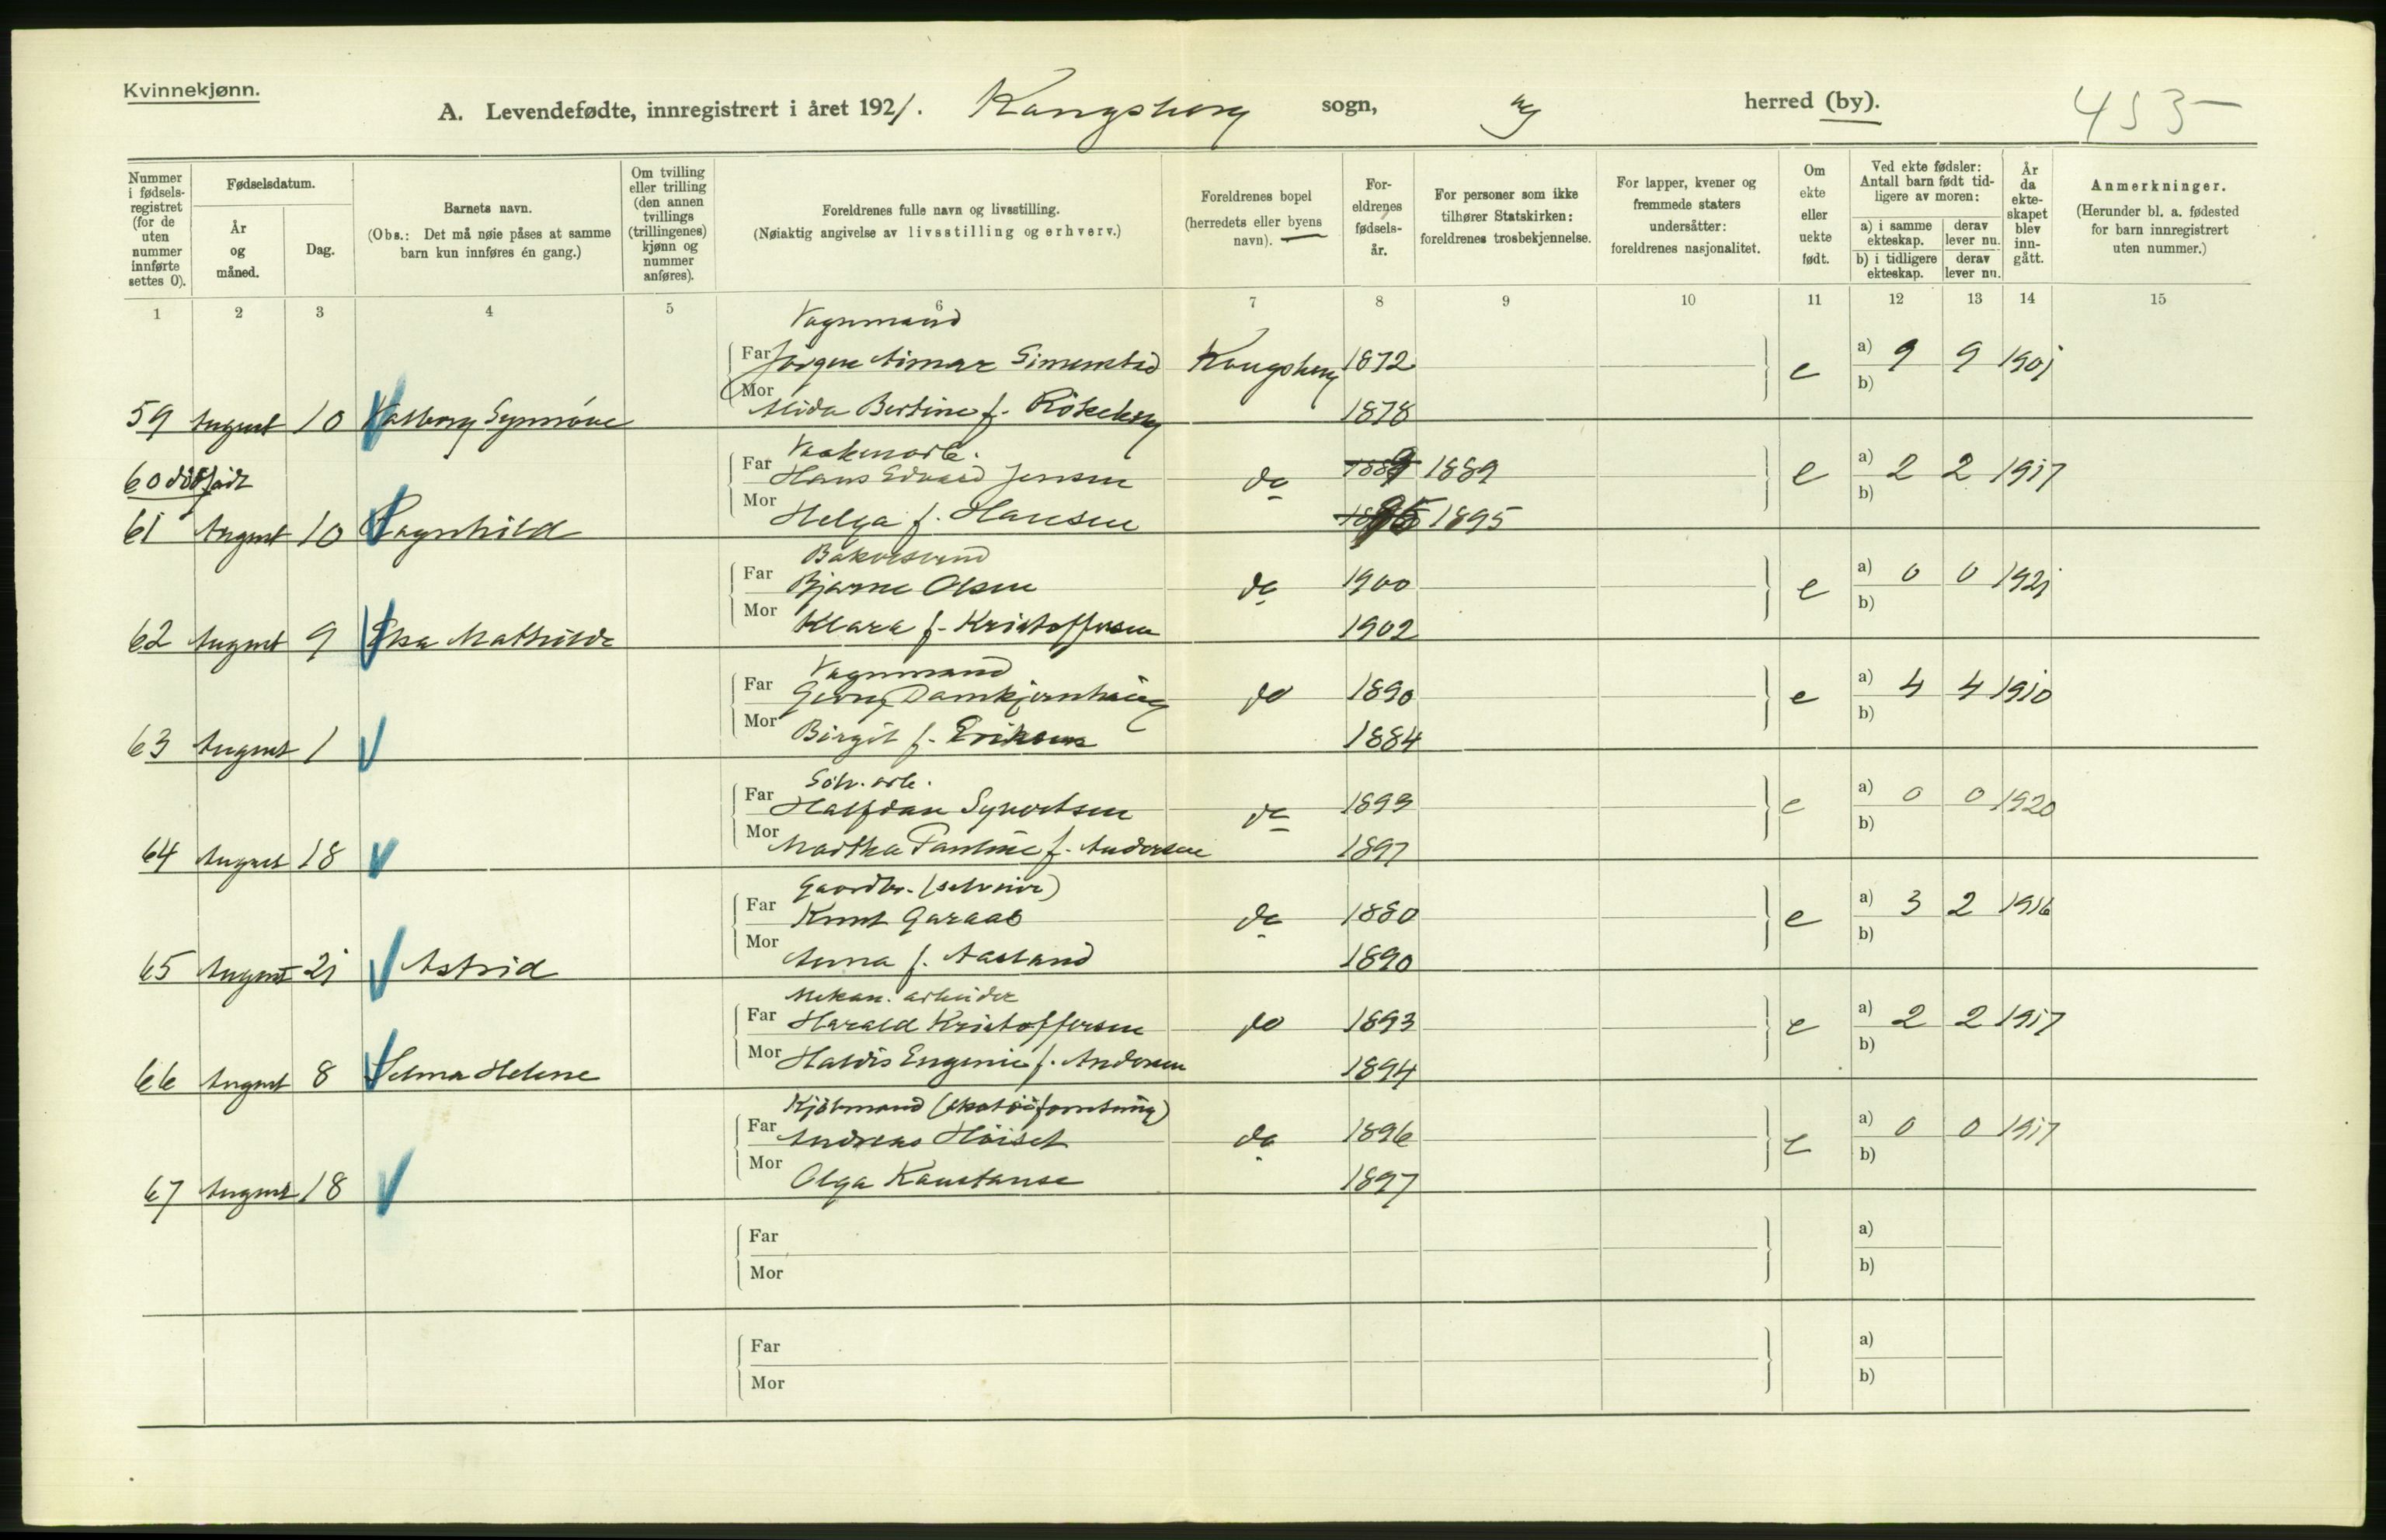 Kvinnekjønn.
A. Levendefødte, innregistrert i året 1921. Kongsberg sogn, herred (by). 453
Nummer i fødsels-registret (for de uten nummer innførte settes 0).
Fødselsdatum.
År og måned.
Dag.
Barnets navn.
(Obs.: Det må nøie påses at samme barn kun innføres én gang.)
Om tvilling eller trilling (den annen tvillings (trillingenes) kjønn og nummer anføres).
Foreldrenes fulle navn og livsstilling.
(Nøiaktig angivelse av livsstilling og erhverv.)
Foreldrenes bopel (herredets eller byens navn).
For-eldrenes fødsels-år.
For personer som ikke tilhører Statskirken: foreldrenes trosbekjennelse.
For lapper, kvener og fremmede staters undersåtter: foreldrenes nasjonalitet.
Om ekte eller uekte født.
Ved ekte fødsler: Antall barn født tid-ligere av moren:
a) i samme ekteskap.
derav lever nu.
b) i tidligere ekteskap.
derav lever nu.
År da ekte-skapet blev inn-gått.
Anmerkninger.
(Herunder bl. a. fødested for barn innregistrert uten nummer.)
1 2 3 4 5 6 7 8 9 10 11 12 13 14 15
Vognmand
Far Jørgen Simenstad Kongsberg 1872 e a) 9 9 1901
Mor Alida Bertine f. 1878 b)
59 August 10 Valborg Synnöve
60 dödfödt
Far Hans Edvard Jensen do 1889 e a) 2 2 1917
Mor Helga f. Hansen 1895 b)
61 August 10 Ragnhild
Bakersvend
Far Bjarne Olsen do 1900 e a) 0 0 1921
Mor Klara f. Kristoffersen 1902 b)
62 August 9 Elsa Mathilde
Vognmand
Far Georg do 1890 e a) 4 4 1910
Mor Birgit f. Eriksen 1884 b)
63 August 1
Sölv. arb.
Far Halfdan Syvertsen do 1893 e a) 0 0 1920
Mor Martha Pauline f. Andersen 1897 b)
64 August 18
Gaardbr. (selveier)
Far Knut Garaas do 1880 e a) 3 2 1916
Mor Anna f. Aasland 1890 b)
65 August 21 Astrid
Mekan. arbeider
Far Harald Kristoffersen do 1893 e a) 2 2 1917
Mor Haldis Eugenie f. Andersen 1894 b)
66 August 8 Selma Helene
Kjöbmand (skotöiforretning)
Far Andreas Höiset do 1896 e a) 0 0 1917
Mor Olga Konstanse 1897 b)
67 August 18
Far a)
Mor b)
Far a)
Mor b)